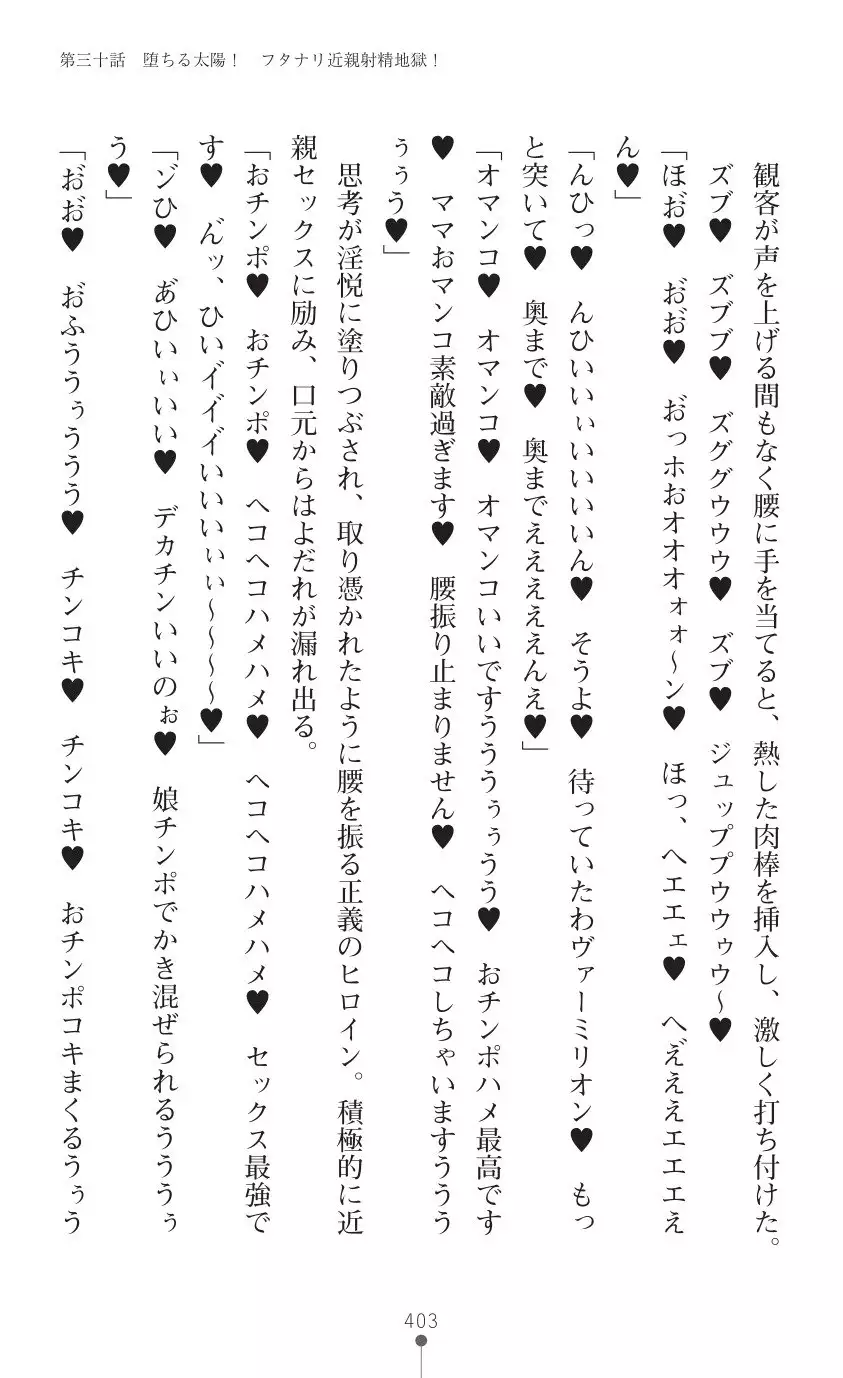 第三十話　堕ちる太陽！　フタナリ近親射精地獄！
　観客が声を上げる間もなく腰に手を当てると、熱した肉棒を挿入し、激しく打ち付けた。
　ズブ♥　ズブブ♥　ズググウウウ♥　ズブ♥　ジュッププウウゥウ～♥
「ほお゛♥　お゛お゛♥　お゛っホおオオオォォ～ン♥　ほっ、へエエェ♥　へえ゛ええエエエぇ
ん♥」
「んひっ♥　んひいいぃいいいいん♥　そうよ♥　待っていたわヴァーミリオン♥　もっ
と突いて♥　奥まで♥　奥までええええええんえ♥」
「オマンコ♥　オマンコ♥　オマンコいいですうううぅぅうう♥　おチンポハメ最高です
♥　ママおマンコ素敵過ぎます♥　腰振り止まりません♥　ヘコヘコしちゃいますううう
ぅぅう♥」
　思考が淫悦に塗りつぶされ、取り憑かれたように腰を振る正義のヒロイン。積極的に近
親セックスに励み、口元からはよだれが漏れ出る。
「おチンポ♥　おチンポ♥　ヘコヘコハメハメ♥　ヘコヘコハメハメ♥　セックス最強で
す♥　ん゛ッ、ひいイ゛イ゛イ゛いいいいぃぃ～～～～♥」
「ゾひ♥　あ゛ひいぃいい♥　デカチンいいのぉ♥　娘チンポでかき混ぜられるうううぅ
う♥」
「お゛お゛♥　お゛ふううぅううう♥　チンコキ♥　チンコキ♥　おチンポコキまくるうぅう
403